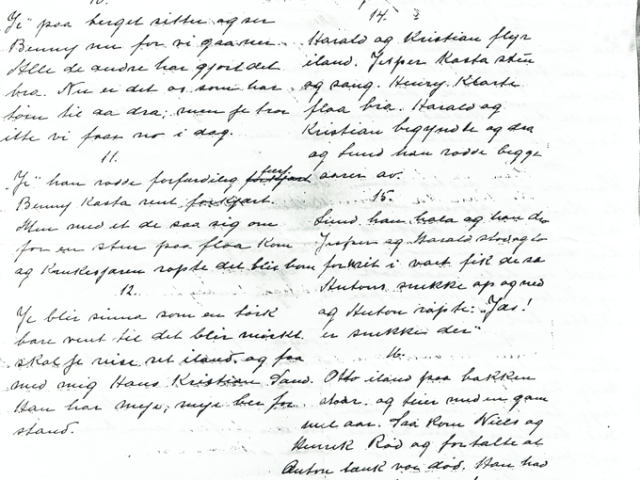 10.
"Je" paa berget sitter og ser
Benny nu for vi gaa ner
Alle de andre har gjort det
bra. Nu er det os som har
törn til aa dra, men je tror
itte vi faar no i dag.
11.
"Je" han rodde forfærdileg
Benny kasta rent forkjært.
Men med et de saa sig om
for en stim paa flaa kom
og Kaukesjaren ropte det blir bom
12.
Je blir sinna som en tørk
bare vent til det blir mørkt
skal je reise ret iland og faa
med mig Hans Kristian Sand.
Han har meje, meje bær for
stand.
14.
Harald og Kristian flyr
iland. Jesper Kasta sten
og sang. Henry Klarte
flaa bra. Harald og
Kristian begyndte og dra
og Lund han rodde begge
aaren av.
15.
Lund han hola og
Jesper og Harald stod og lo
fik de sa
Antons snekke op og ned
og Anton ropte: "Jas!
er snekke der"
16.
Otto iland paa bakken
staar. og teier med en gam
mel aar. Saa kom Niels og
Henrik Rød og fortalte at
Anton tank var død. Han had